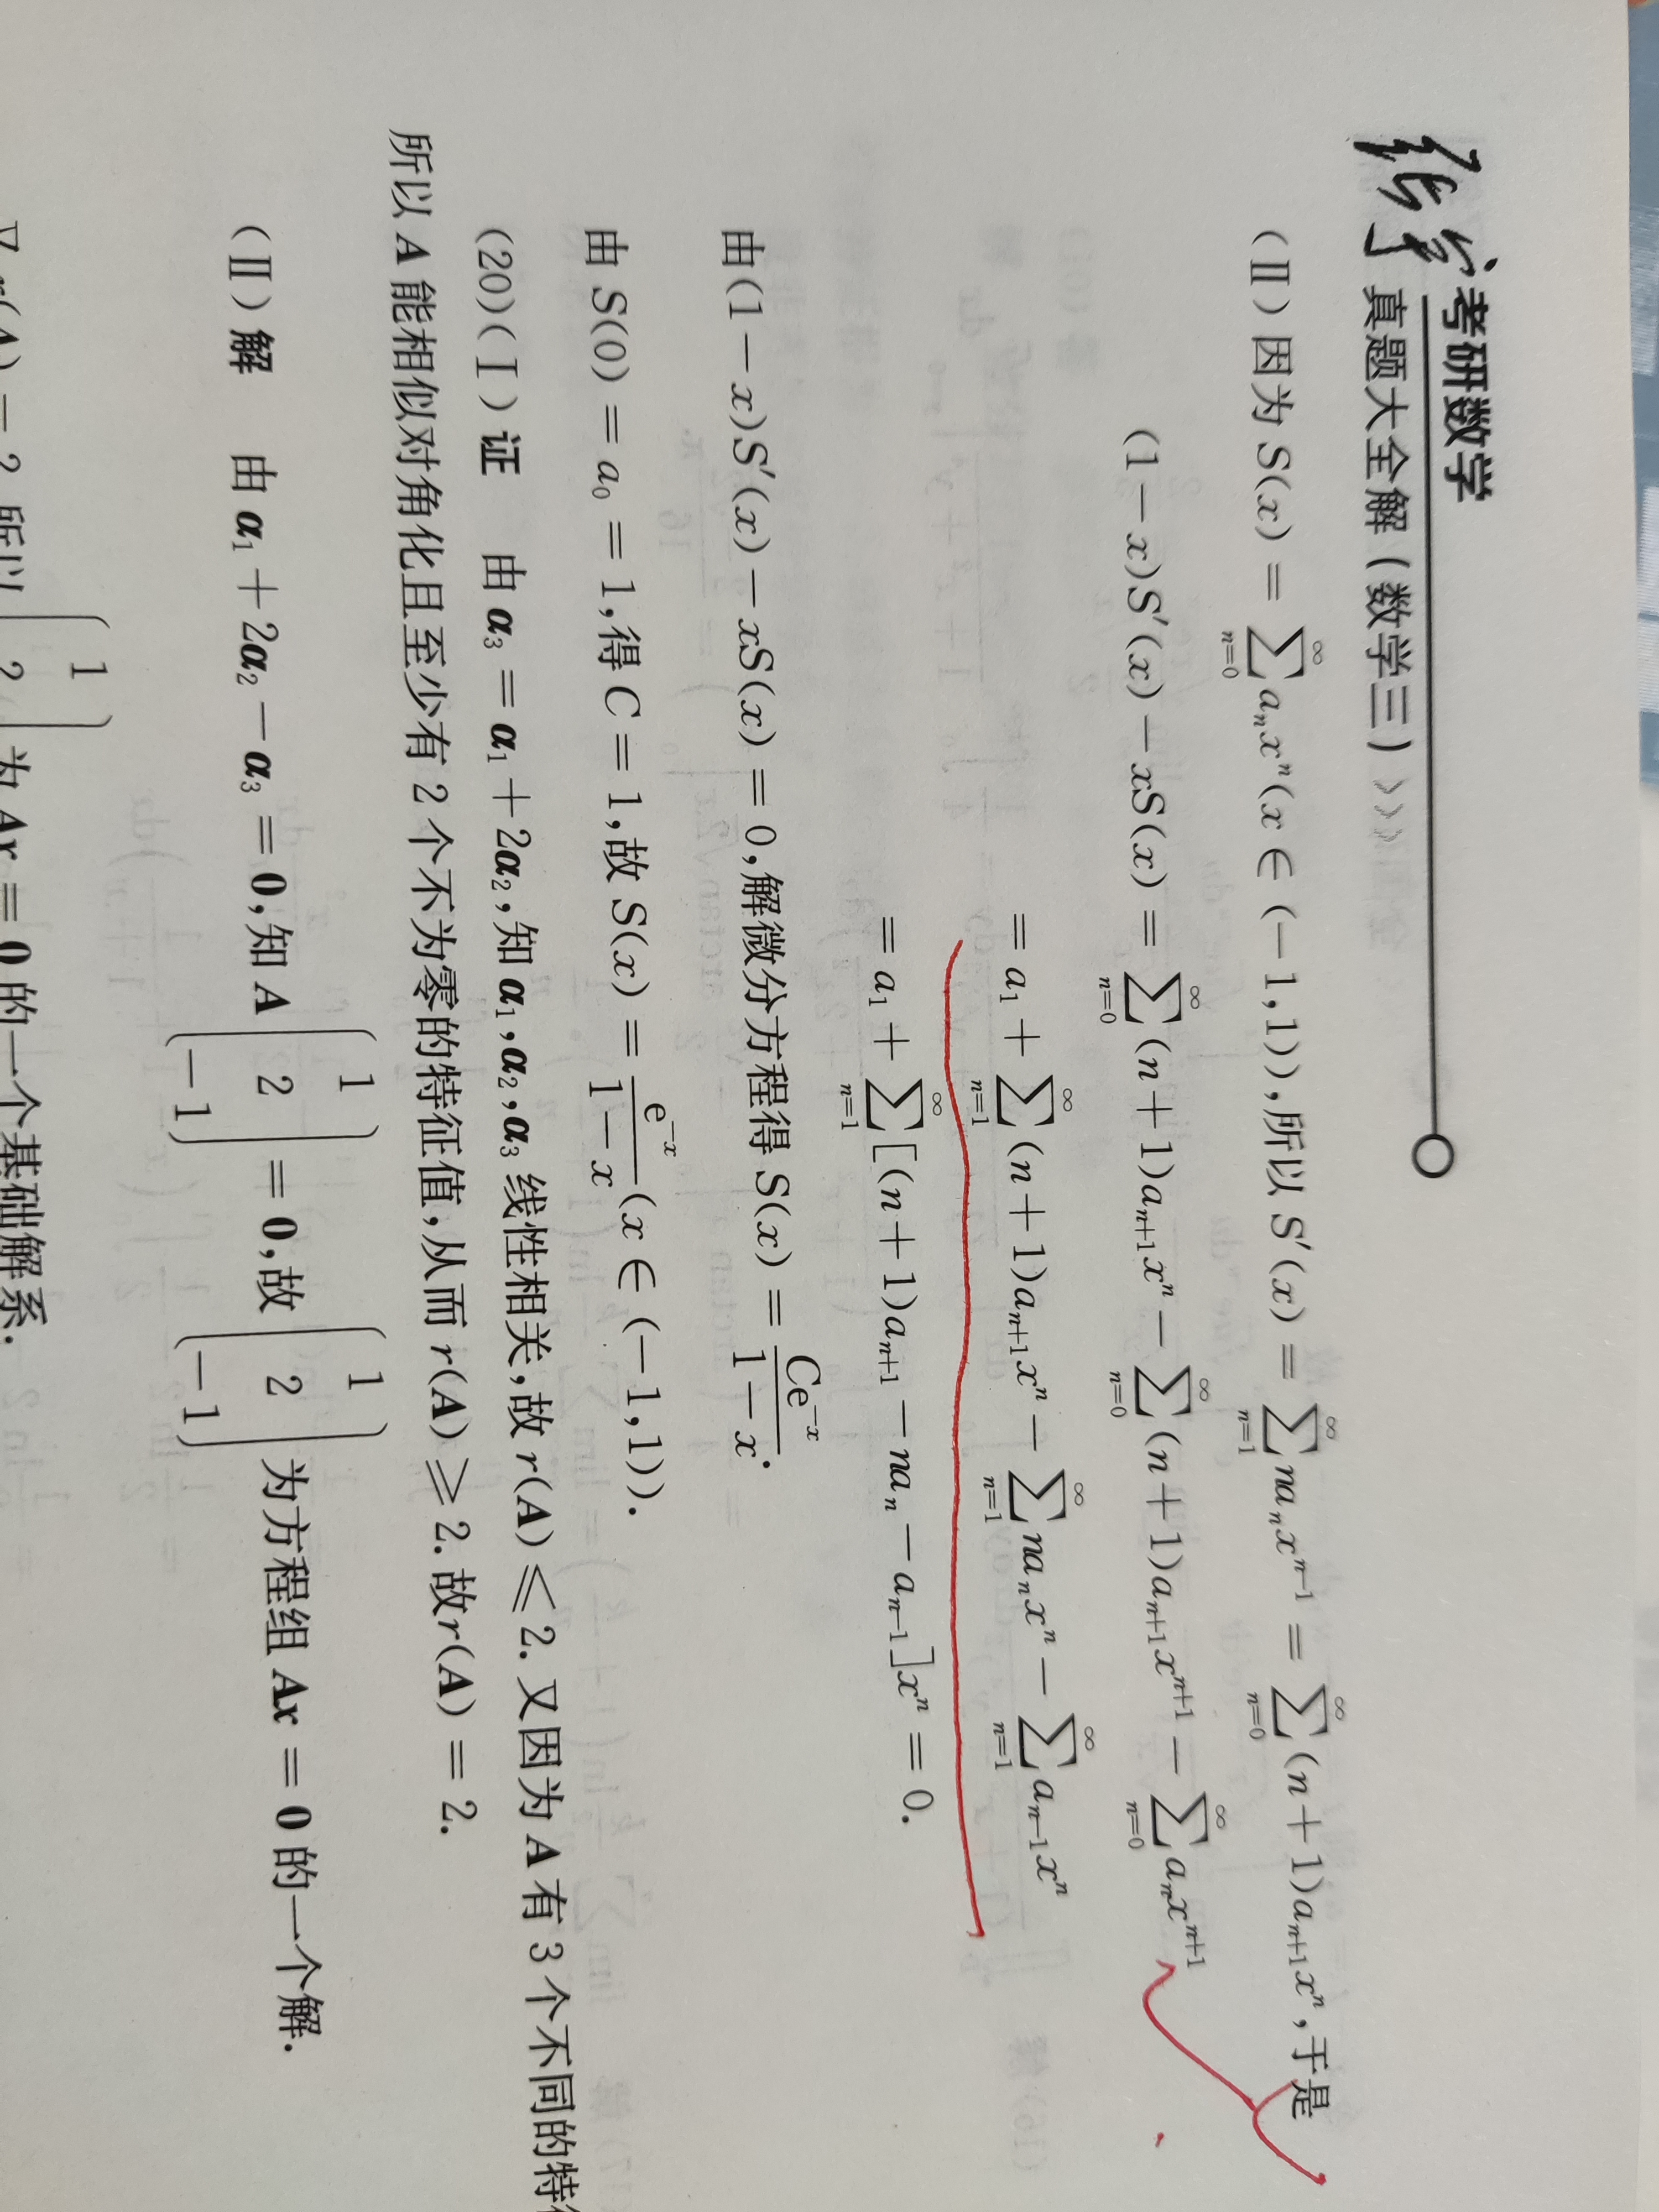 张宇考研数学
真题大全解(数学三)>>>
(Ⅱ)因为 S(x) = ∑_{n=0}^{∞} a_n x^n (x ∈ (-1,1)),所以 S′(x) = ∑_{n=1}^{∞} na_n x^{n-1} = ∑_{n=0}^{∞} (n+1)a_{n+1} x^n,于是
(1-x)S′(x)-xS(x) = ∑_{n=0}^{∞} (n+1)a_{n+1} x^n - ∑_{n=0}^{∞} (n+1)a_{n+1} x^{n+1} - ∑_{n=0}^{∞} a_n x^{n+1}
= a_1 + ∑_{n=1}^{∞} (n+1)a_{n+1} x^n - ∑_{n=1}^{∞} na_n x^n - ∑_{n=1}^{∞} a_{n-1} x^n
= a_1 + ∑_{n=1}^{∞} [(n+1)a_{n+1} - na_n - a_{n-1}]x^n = 0.
由(1-x)S′(x)-xS(x) = 0,解微分方程得 S(x) = \frac{Ce^{-x}}{1-x}.
由 S(0) = a_0 = 1,得 C = 1,故 S(x) = \frac{e^{-x}}{1-x} (x ∈ (-1,1)).
(20)(Ⅰ)证 由 α_3 = α_1 + 2α_2,知 α_1,α_2,α_3 线性相关,故 r(A) ≤ 2. 又因为 A 有 3 个不同的特
所以 A 能相似对角化且至少有 2 个不为零的特征值,从而 r(A) ≥ 2. 故r(A) = 2.
(Ⅱ)解 由 α_1 + 2α_2 - α_3 = 0,知 A \begin{pmatrix} 1 \\ 2 \\ -1 \end{pmatrix} = 0,故 \begin{pmatrix} 1 \\ 2 \\ -1 \end{pmatrix} 为方程组 Ax = 0 的一个解.
又 r(A) = 2,所以 1 2 为 Ax = 0 的一个基础解系.